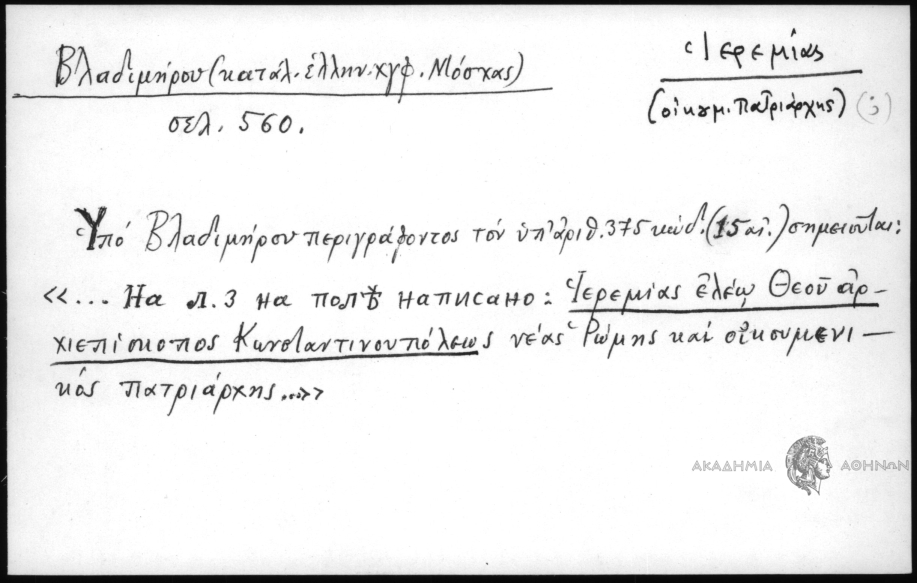 Βλαδιμήρου (κατάλ. ἑλλην. χγφ. Μόσχας)
σελ. 560.
Ἱερεμίας
(οἰκουμ. Πατριάρχης)
Ὑπό Βλαδιμήρου περιγράφοντος τόν ὑπ' ἀριθ. 375 κώδ. (15 αἰ.) σημειοῦται:
«... На л. 3 на полѣ написано: Ἱερεμίας ἐλέῳ Θεοῦ ἀρ-
χιεπίσκοπος Κωνσταντινουπόλεως νέας Ῥώμης καί οἰκουμενι-
κός πατριάρχης...»
ΑΚΑΔΗΜΙΑ ΑΘΗΝΩΝ